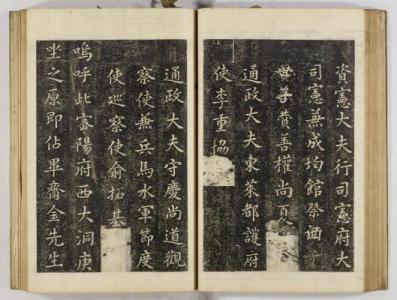 資憲大夫行司憲府大
司憲兼成均館祭酒
世子贊善權尚夏
通政大夫東萊都護府
使李重協
通政大夫守慶尚道觀
察使兼兵馬水軍節度
使巡察使俞拓基
嗚呼此密陽府西大洞庚
坐之原即佔畢齋金先生